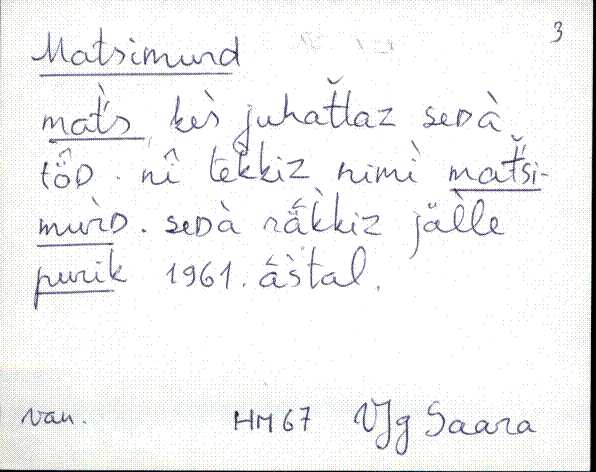 3
Matsimurd
mat̆s̀, kès̀ juhat̆laz seᴅà
tö̂ᴅ. nî tekkiz nimì mat̆si-
murìᴅ. seᴅà rä́k̀kiz jäl̀le
purik 1961. ás̀tal.
van. HM 67 VJg Saara